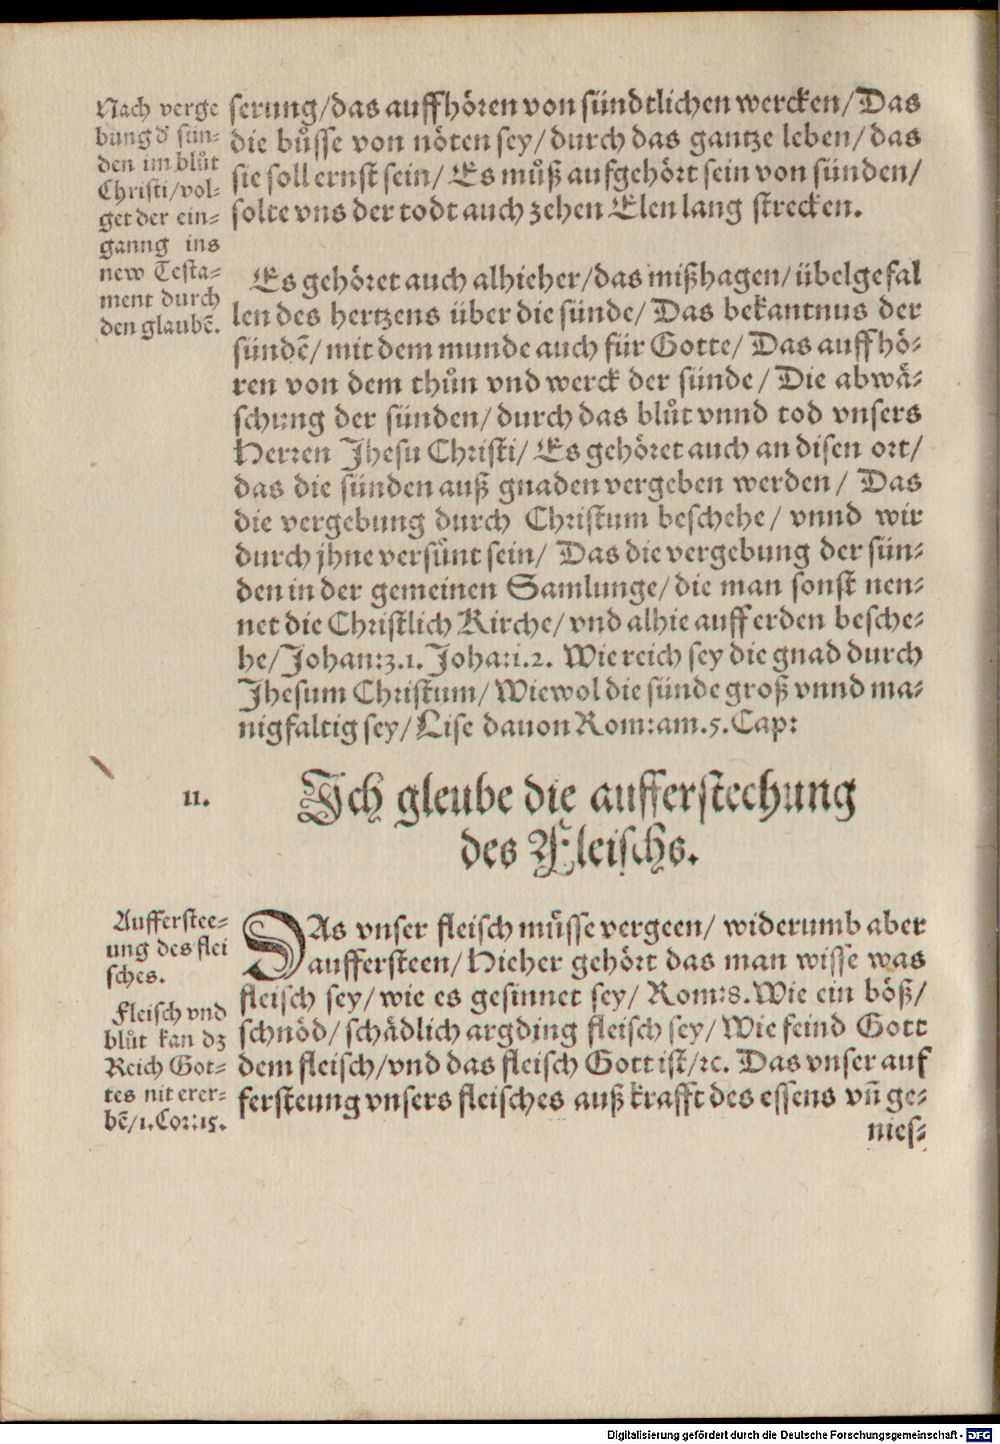 Nach verge
bung d' sün-
den im blůt
Christi/vol-
get der ein-
ganng ins
new Testa-
ment durch
den glaubē.
serung/das auffhören von sündtlichen wercken/Das
die bůsse von nöten sey/durch das gantze leben/das
sie soll ernst sein/ Es můß aufgehört sein von sünden/
solte vns der todt auch zehen Elen lang strecken.
Es gehöret auch alhieher/das mißhagen/übelgefal
len des hertzens über die sünde/ Das bekantnus der
sündē/mit dem munde auch für Gotte/ Das auffhö-
ren von dem thůn vnd werck der sünde/ Die abwä-
schung der sünden/durch das blůt vnnd tod vnsers
Herren Jhesu Christi/ Es gehöret auch an disen ort/
das die sünden auß gnaden vergeben werden/ Das
die vergebung durch Christum beschehe/ vnnd wir
durch jhne versünt sein/ Das die vergebung der sün-
den in der gemeinen Samlunge/die man sonst nen-
net die Christlich Kirche/vnd alhie auff erden besche-
he/Johan:3.1. Joha:1.2. Wie reich sey die gnad durch
Jhesum Christum/Wiewol die sünde groß vnnd ma-
nigfaltig sey/Lise dauon Rom:am.5.Cap:
11.
Ich gleube die aufferstechung
des Fleischs.
Aufferstee-
ung des flei
sches.
Fleisch vnd
blůt kan dz
Reich Got-
tes nit erer-
bē/1.Cor:15.
DAs vnser fleisch müsse vergeen/ widerumb aber
auffersteen/Hieher gehört das man wisse was
fleisch sey/wie es gesinnet sey/ Rom:8.Wie ein böß/
schnöd/schädlich argding fleisch sey/Wie feind Gott
dem fleisch/vnd das fleisch Gott ist/ꝛc. Das vnser auf
fersteung vnsers fleisches auß krafft des essens vn̄ ge-
nies-
Digitalisierung gefördert durch die Deutsche Forschungsgemeinschaft - DFG